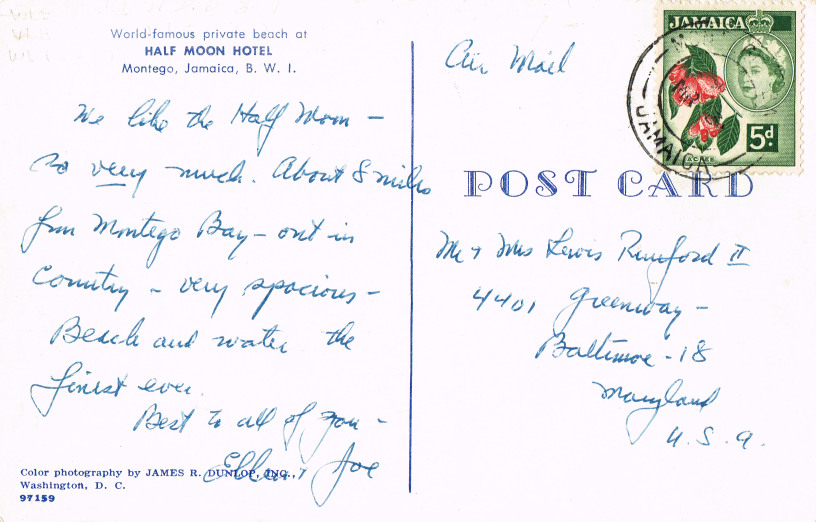 World-famous private beach at
HALF MOON HOTEL
Montego, Jamaica, B. W. I.
We like the Half Moon -
so very much. About 8 miles
from Montego Bay - out in
Country - very spacious -
Beach and water the
finest ever.
Best to all of you -
Ellen + Joe
Color photography by JAMES R. DUNLOP, INC.,
Washington, D. C.
97159
Air Mail
JAMAICA
5d
ACKEE
JAMAICA
POST CARD
Mr + Mrs Lewis Rumford II
4401 Greenway -
Baltimore - 18
Maryland
U. S. A.